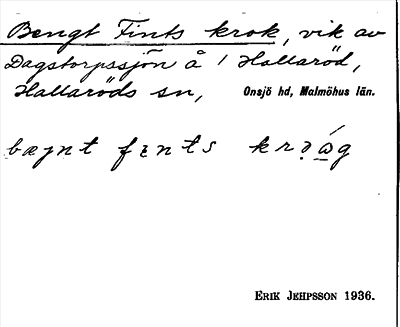 Bengt Fints krok, vik av
Dagstorpssjön å 1 Hallaröd,
Hallaröds sn, Onsjö hd, Malmöhus län.
bæjnt fints
ERIK JEHPSSON 1936.